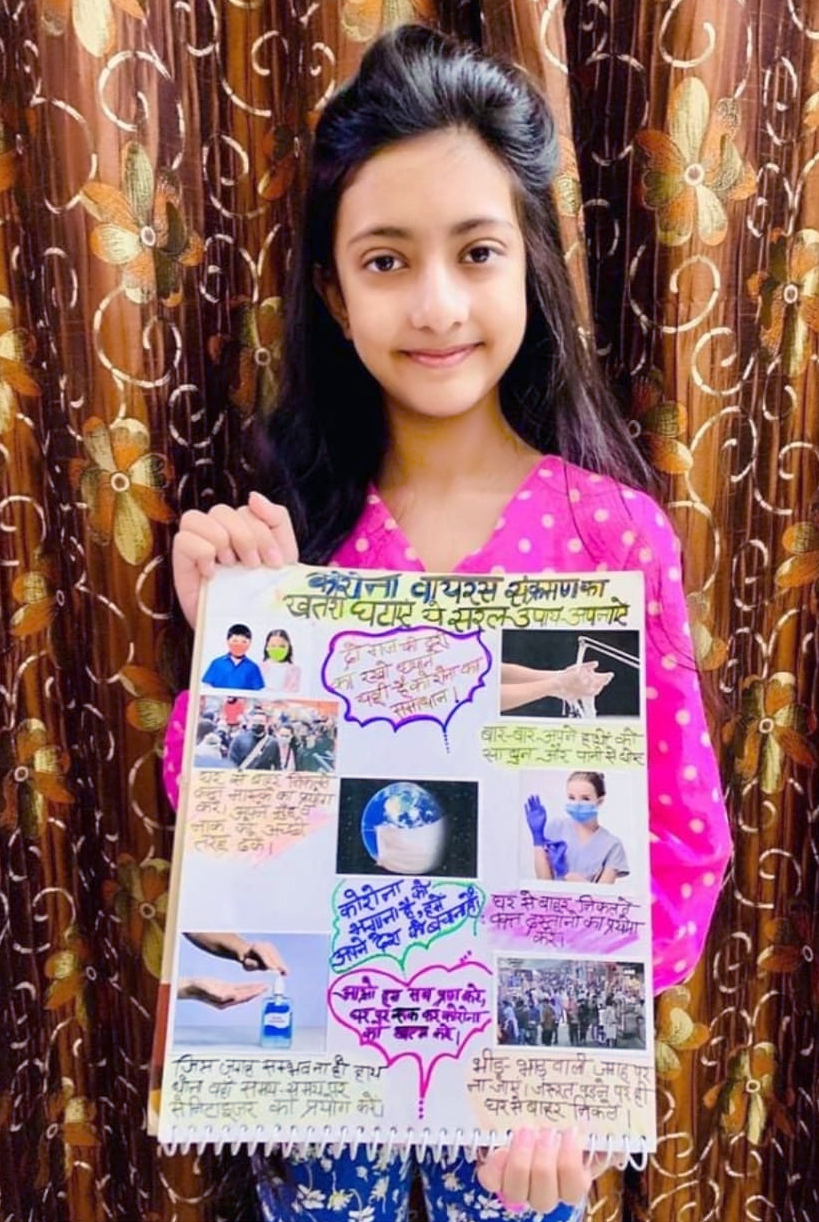 कोरोना वायरस संक्रमण का
खतरा घटाए ये सरल उपाय अपनाऐ
दो गज की दूरी
का रखो ध्यान
यही है कोरोना का
समाधान।
बार-बार अपने हाथों को
साबुन और पानी से धोए
घर से बाहर निकलते
वक्त मास्क का प्रयोग
करें। अपने मुँह व
नाक को अच्छी
तरह ढकें।
कोरोना को
भगाना है, हमें
अपने देश को बचाना है।
घर से बाहर निकलते
वक्त दस्तानों का प्रयोग
करें।
आओ हम सब प्रण करे,
घर पर रूक कर कोरोना
को खत्म करे।
जिस जगह सम्भव ना हो हाथ
धोना वहाँ समय-समय पर
सैनिटाइजर का प्रयोग करें।
भीड़-भाड़ वाली जगह पर
ना जाए। जरूरत पड़ने पर ही
घर से बाहर निकलें।